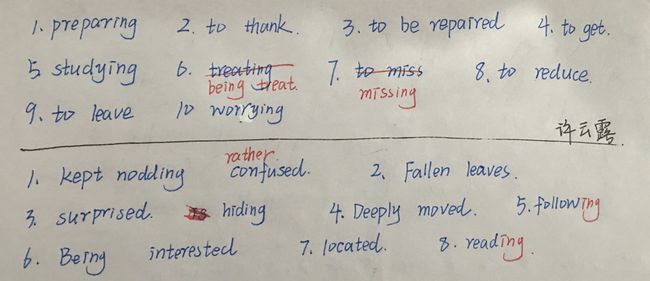 1. preparing 2. to thank. 3. to be repaired 4. to get.
5 studying 6. treating 7. to miss 8. to reduce.
being treat. missing
9. to leave 10 worrying
许云露.
rather
1. kept nodding confused. 2. Fallen leaves.
3. surprised. is hiding 4. Deeply moved. 5. following
6. Being interested 7. located. 8. reading.